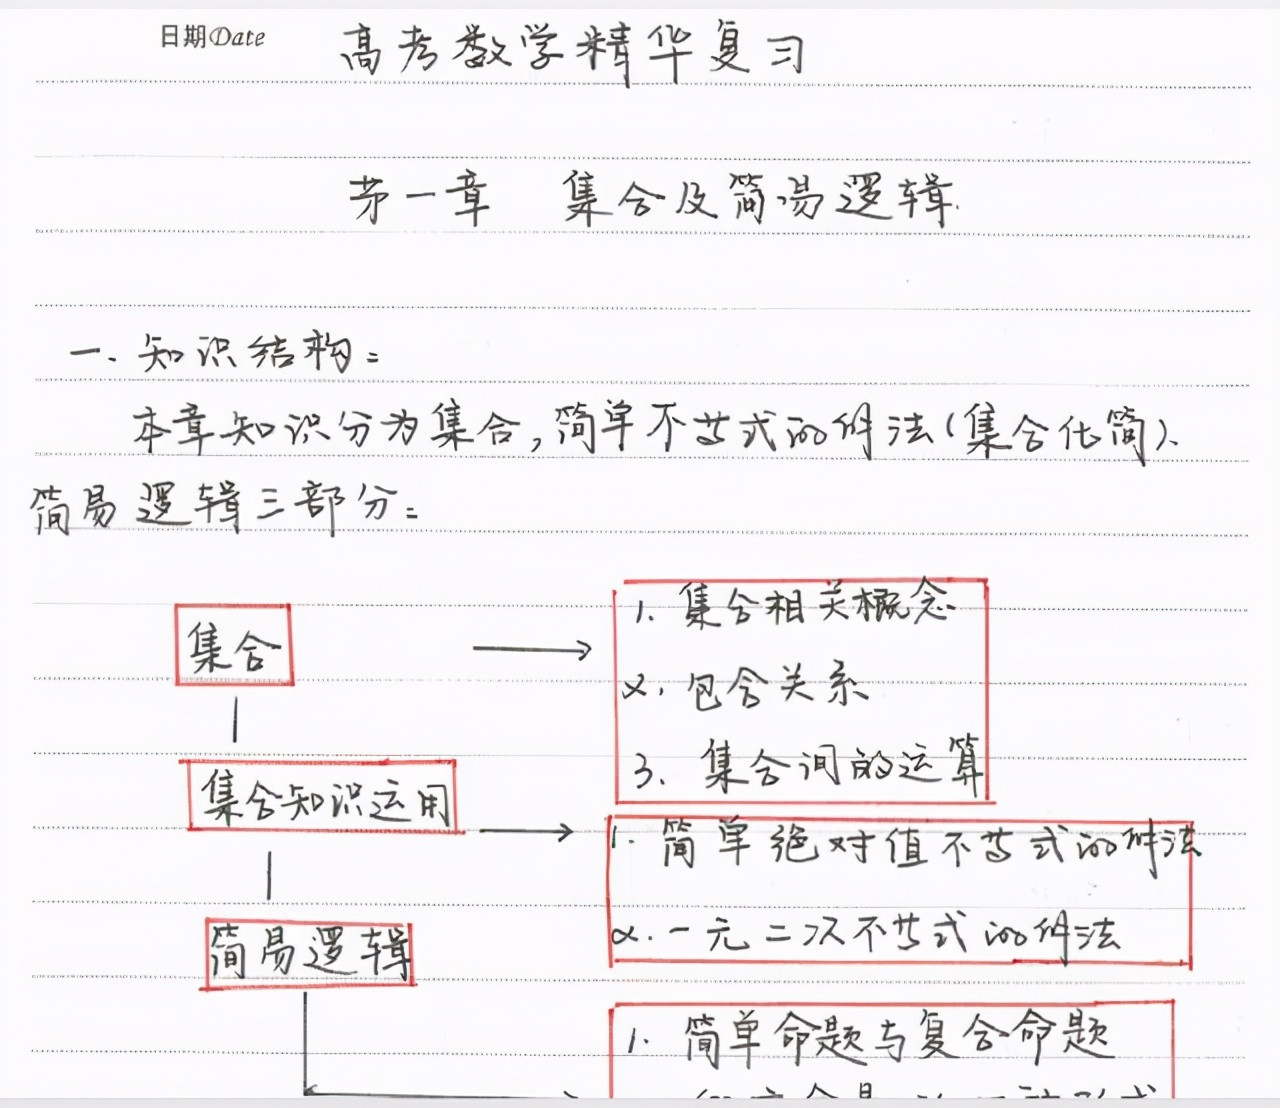 日期Date
高考数学精华复习
第一章 集合及简易逻辑.
一. 知识结构:
本章知识分为集合,简单不等式的解法(集合化简)、
简易逻辑三部分:
集合
1. 集合相关概念
2. 包含关系
3. 集合间的运算
集合知识运用
1. 简单绝对值不等式的解法
2. 一元二次不等式的解法
简易逻辑
1. 简单命题与复合命题